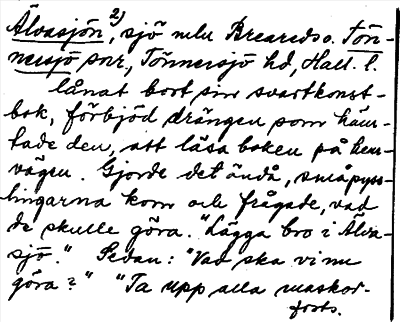 Älvasjön, 2) sjö mln Breareds o. Tön-
nersjö snr, Tönnersjö hd, Hall. l.
lånat bort sin svartkonst-
bok, förbjöd drängen som häm-
tade den, att läsa boken på hem-
vägen. Gjorde det ändå, småpyss-
lingarna kom och frågade, vad
de skulle göra. "Lägga bro i Älva-
sjö." Sedan: "Vad ska vi nu
göra?" "Ta upp alla maskor-
forts.